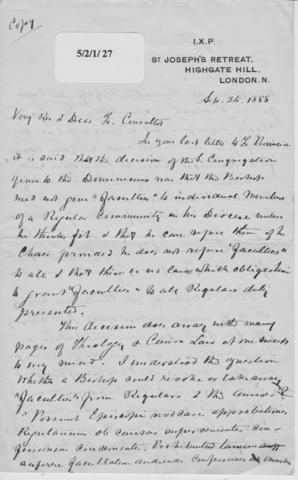 Copy
5/2/1/27
I.X.P.
ST JOSEPH'S RETREAT,
HIGHGATE HILL,
LONDON. N.
Sep. 24, 1888
Very Revd & Dear Fr. Consultor
In your last letter to Fr.
it is said that the decision of the S. Congregation
given to the Dominicans was that the Bishop
need not give "faculties" to individual Members
of a Regular Community in his Diocese unless
he thinks fit & that he can refuse them if he
chooses provided he does not refuse "faculties"
to all & that there is no law which obliges him
to grant "faculties" to all Regulars duly
presented.
This decision does away with many
pages of Theology & Canon Law at one sweep
to my mind. I understood the question
whether a Bishop could revoke or take away
"faculties" from Regulars & the answer
"Possunt Episcopi revocare approbationes
Regularium ob causas supervenientes con-
fessionem concernentes. Prohibentur tamen
auferre facultatem audiendi Confessiones omnibus